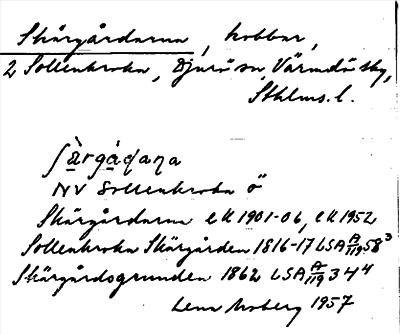 Skärgårdarna, kobbar,
2 Sollenkroka, Djurö sn, Värmdö sky,
Sthlms. l.
ʃä̀rgáḍaṇa
NV Sollenkroka ö
Skärgårdarna ek 1901-06, ek 1952
Sollenkroka Skärgården 1816-17 LSA A/119 58³
Skärgårdsgrunden 1862 LSA A/119 34⁴
Lena Moberg 1957